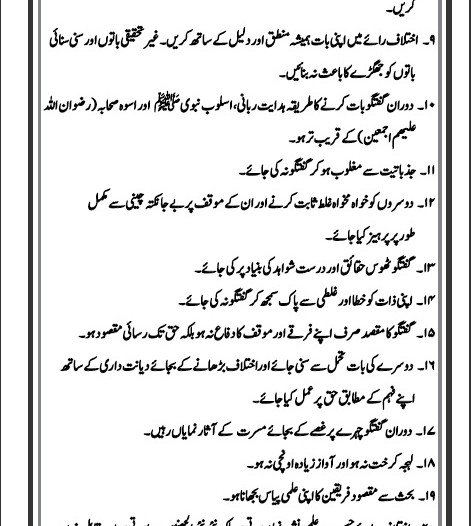 کریں۔
۹۔ اختلاف رائے میں اپنی بات ہمیشہ منطق اور دلیل کے ساتھ کریں۔ غیر تحقیقی باتوں اور سنی سنائی
باتوں کو جھگڑے کا باعث نہ بنائیں۔
۱۰۔ دوران گفتگو بات کرنے کا طریقہ ہدایت ربانی، اسلوب نبوی ﷺ اور اسوہ صحابہ (رضوان اللہ
علیہم اجمعین) کے قریب تر ہو۔
۱۱۔ جذباتیت سے مغلوب ہو کر گفتگو نہ کی جائے۔
۱۲۔ دوسروں کو خواہ مخواہ غلط ثابت کرنے اور ان کے موقف پر بے جا نکتہ چینی سے مکمل
طور پر پرہیز کیا جائے۔
۱۳۔ گفتگو ٹھوس حقائق اور درست شواہد کی بنیاد پر کی جائے۔
۱۴۔ اپنی ذات کو خطا اور غلطی سے پاک سمجھ کر گفتگو نہ کی جائے۔
۱۵۔ گفتگو کا مقصد صرف اپنے فرقے اور موقف کا دفاع نہ ہو بلکہ حق تک رسائی مقصود ہو۔
۱۶۔ دوسرے کی بات تحمل سے سنی جائے اور اختلاف بڑھانے کے بجائے دیانت داری کے ساتھ
اپنے فہم کے مطابق حق پر عمل کیا جائے۔
۱۷۔ دوران گفتگو چہرے پر غصے کے بجائے مسرت کے آثار نمایاں رہیں۔
۱۸۔ لہجہ کرخت نہ ہو اور آواز زیادہ اونچی نہ ہو۔
۱۹۔ بحث سے مقصود فریقین کا اپنی علمی پیاس بجھانا ہو۔